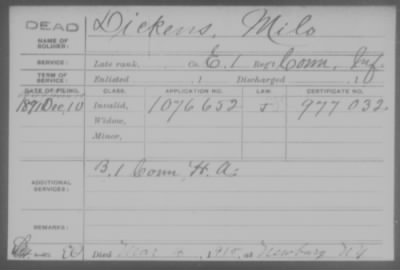 DEAD
NAME OF SOLDIER:
Dickens, Milo
SERVICE:
Late rank, Co. E. 1 Reg't Conn. Inf.
TERM OF SERVICE:
Enlisted , 1 Discharged , 1
DATE OF FILING. CLASS. APPLICATION NO. LAW. CERTIFICATE NO.
1891 Dec, 10 Invalid, 1076652 J 977032.
Widow,
Minor,
ADDITIONAL SERVICES:
B. 1 Conn. H. A.
REMARKS:
Died Mar , 19 , at Newburg NY